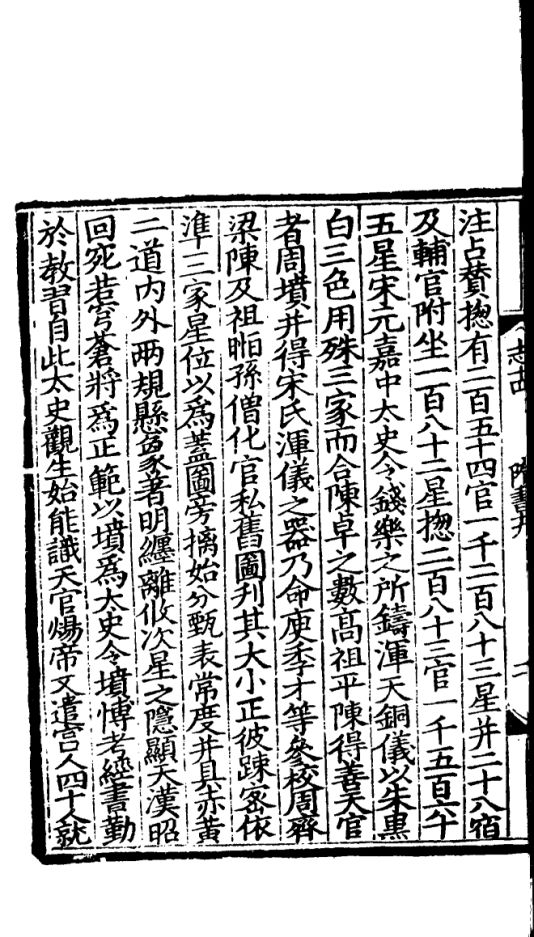 注占贊揔有二百五十四官一千二百八十三星并二十八宿
及輔官附坐一百八十二星揔二百八十三官一千五百六十
五星宋元嘉中太史令錢樂之所鑄渾天銅儀以朱黒
白三色用殊三家而合陳卓之數髙祖平陳得善天官
者周墳并得宋氏渾儀之器乃命庾季才等參校周齊
梁陳及祖暅孫僧化官私舊圖刋其大小正彼踈宻依
準三家星位以爲蓋圖旁摛始分甄表常度并具赤黄
二道内外兩規懸象著明纏離攸次星之隱顯天漢昭
回宛若穹蒼將爲正範以墳爲太史令墳愽考經書勤
於教習自此太史觀生始能識天官煬帝又遣宫人四十人就
志十四
隋書十九